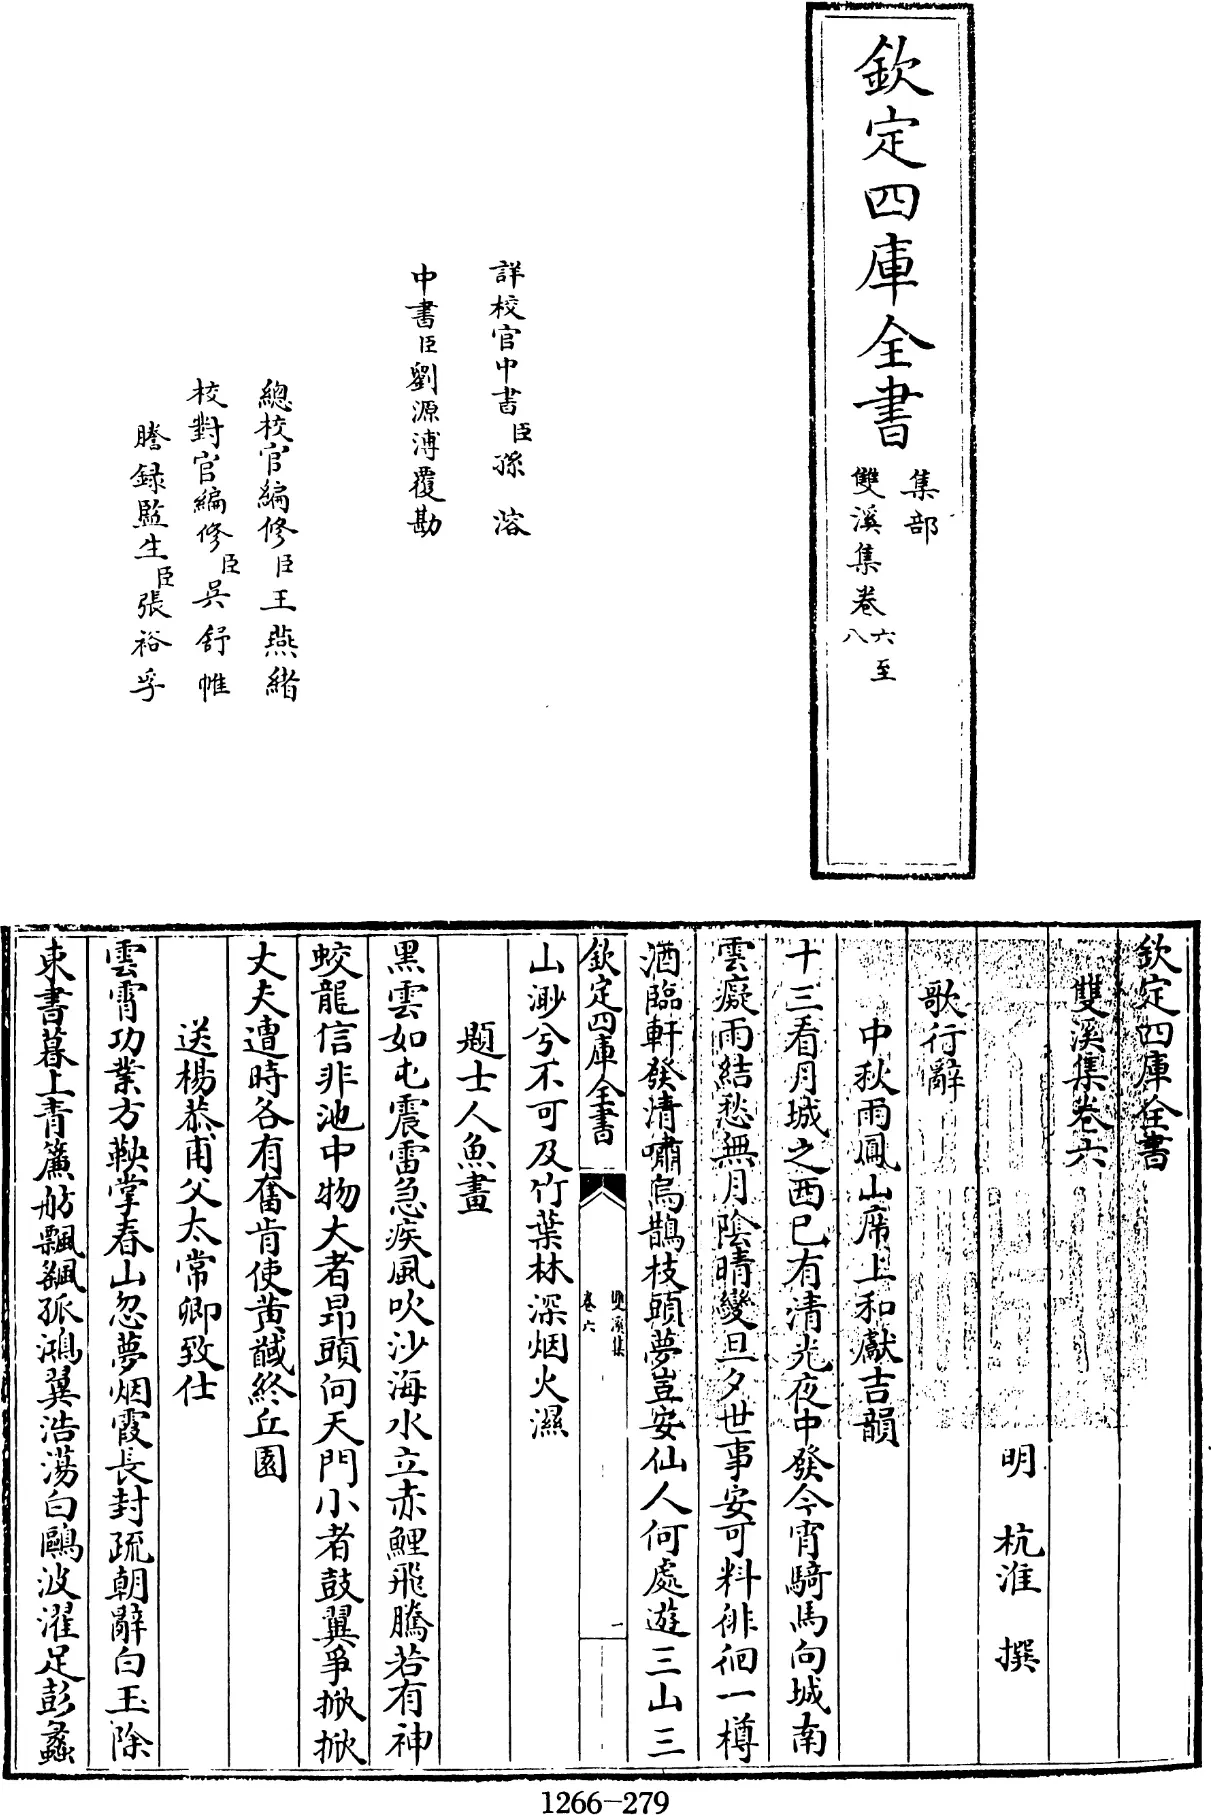 欽定四庫全書
集部
雙溪集卷六至八
詳校官中書臣孫溶
中書臣劉源溥覆勘
總校官編修臣王燕緒
校對官編修臣吳舒帷
謄録監生臣張裕孚
欽定四庫全書
雙溪集卷六
明 杭淮 撰
歌行辭
中秋雨鳳山席上和獻吉韻
十三看月城之西已有清光夜中發今宵騎馬向城南
雲癡雨結愁無月陰晴變旦夕世事安可料徘徊一樽
酒臨軒發清嘯烏鵲枝頭夢豈安仙人何處遊三山三
欽定四庫全書
雙溪集
卷六
一
山渺兮不可及竹葉林深烟火濕
題士人魚畫
黒雲如屯震雷急疾風吹沙海水立赤鯉飛騰若有神
蛟龍信非池中物大者昂頭向天門小者鼓翼爭掀掀
丈夫遭時各有奮肯使黄馘終丘園
送楊恭甫父太常卿致仕
雲霄功業方鞅掌春山忽夢烟霞長封疏朝辭白玉除
束書暮上青簾舫飄飄孤鴻翼浩蕩白鷗波濯足彭蠡
1266-279